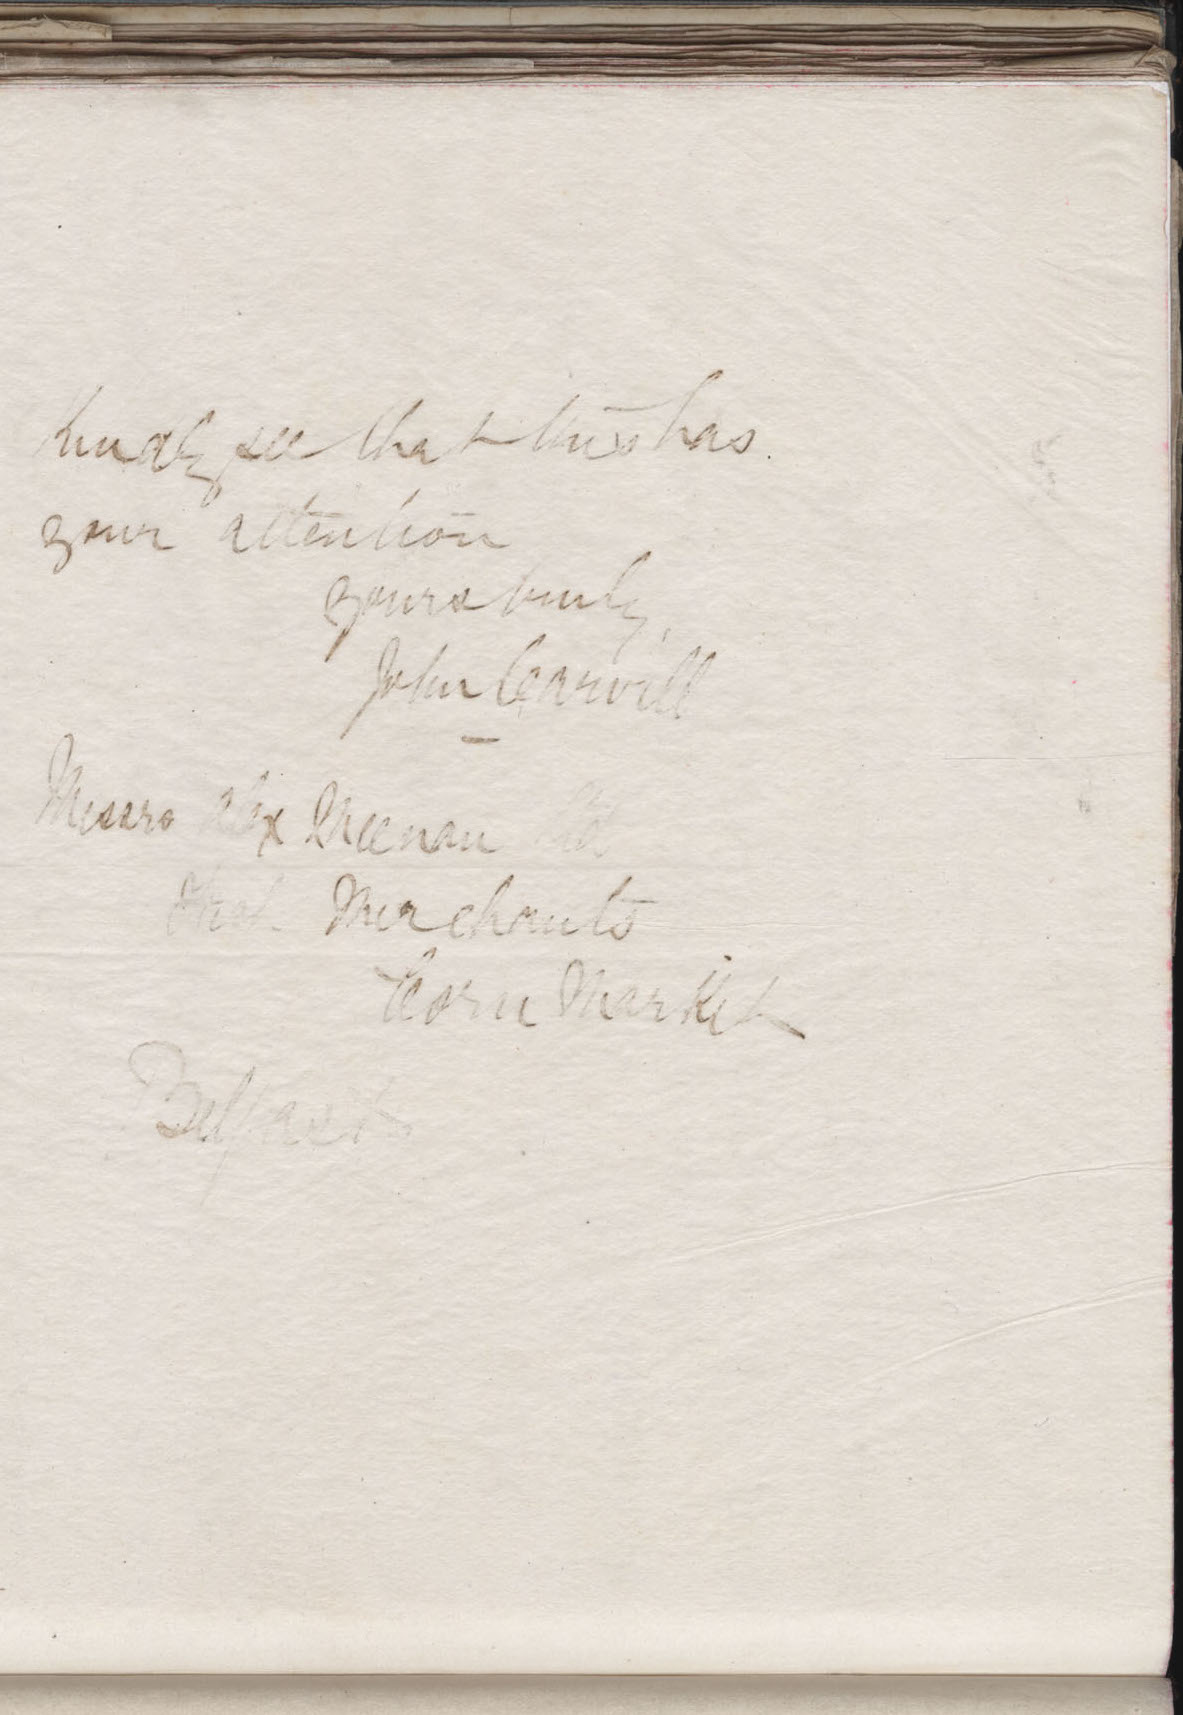 Kindly see that this has
your attention
Yours truly,
John Carvill
Messrs Alex Ltd
Merchants
Corn Market
Belfast